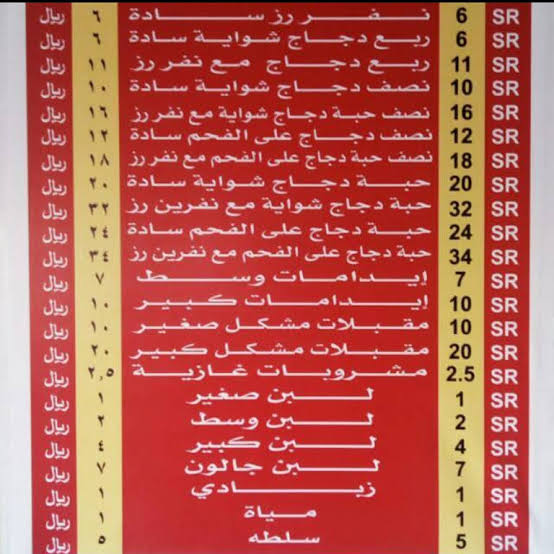 ريال ٦ نفر رز سادة 6 SR
ريال ٦ ربع دجاج شواية سادة 6 SR
ريال ١١ ربع دجاج مع نفر رز 11 SR
ريال ١٠ نصف دجاج شواية سادة 10 SR
ريال ١٦ نصف حبة دجاج شواية مع نفر رز 16 SR
ريال ١٢ نصف دجاج على الفحم سادة 12 SR
ريال ١٨ نصف حبة دجاج على الفحم مع نفر رز 18 SR
ريال ٢٠ حبة دجاج شواية سادة 20 SR
ريال ٣٢ حبة دجاج شواية مع نفرين رز 32 SR
ريال ٢٤ حبة دجاج على الفحم سادة 24 SR
ريال ٣٤ حبة دجاج على الفحم مع نفرين رز 34 SR
ريال ٧ إيدامات وسط 7 SR
ريال ١٠ إيدامات كبير 10 SR
ريال ١٠ مقبلات مشكل صغير 10 SR
ريال ٢٠ مقبلات مشكل كبير 20 SR
ريال ٢,٥ مشروبات غازية 2.5 SR
ريال ١ لبن صغير 1 SR
ريال ٢ لبن وسط 2 SR
ريال ٤ لبن كبير 4 SR
ريال ٧ لبن جالون 7 SR
ريال ١ زبادي 1 SR
ريال ١ مياة 1 SR
ريال ٥ سلطه 5 SR